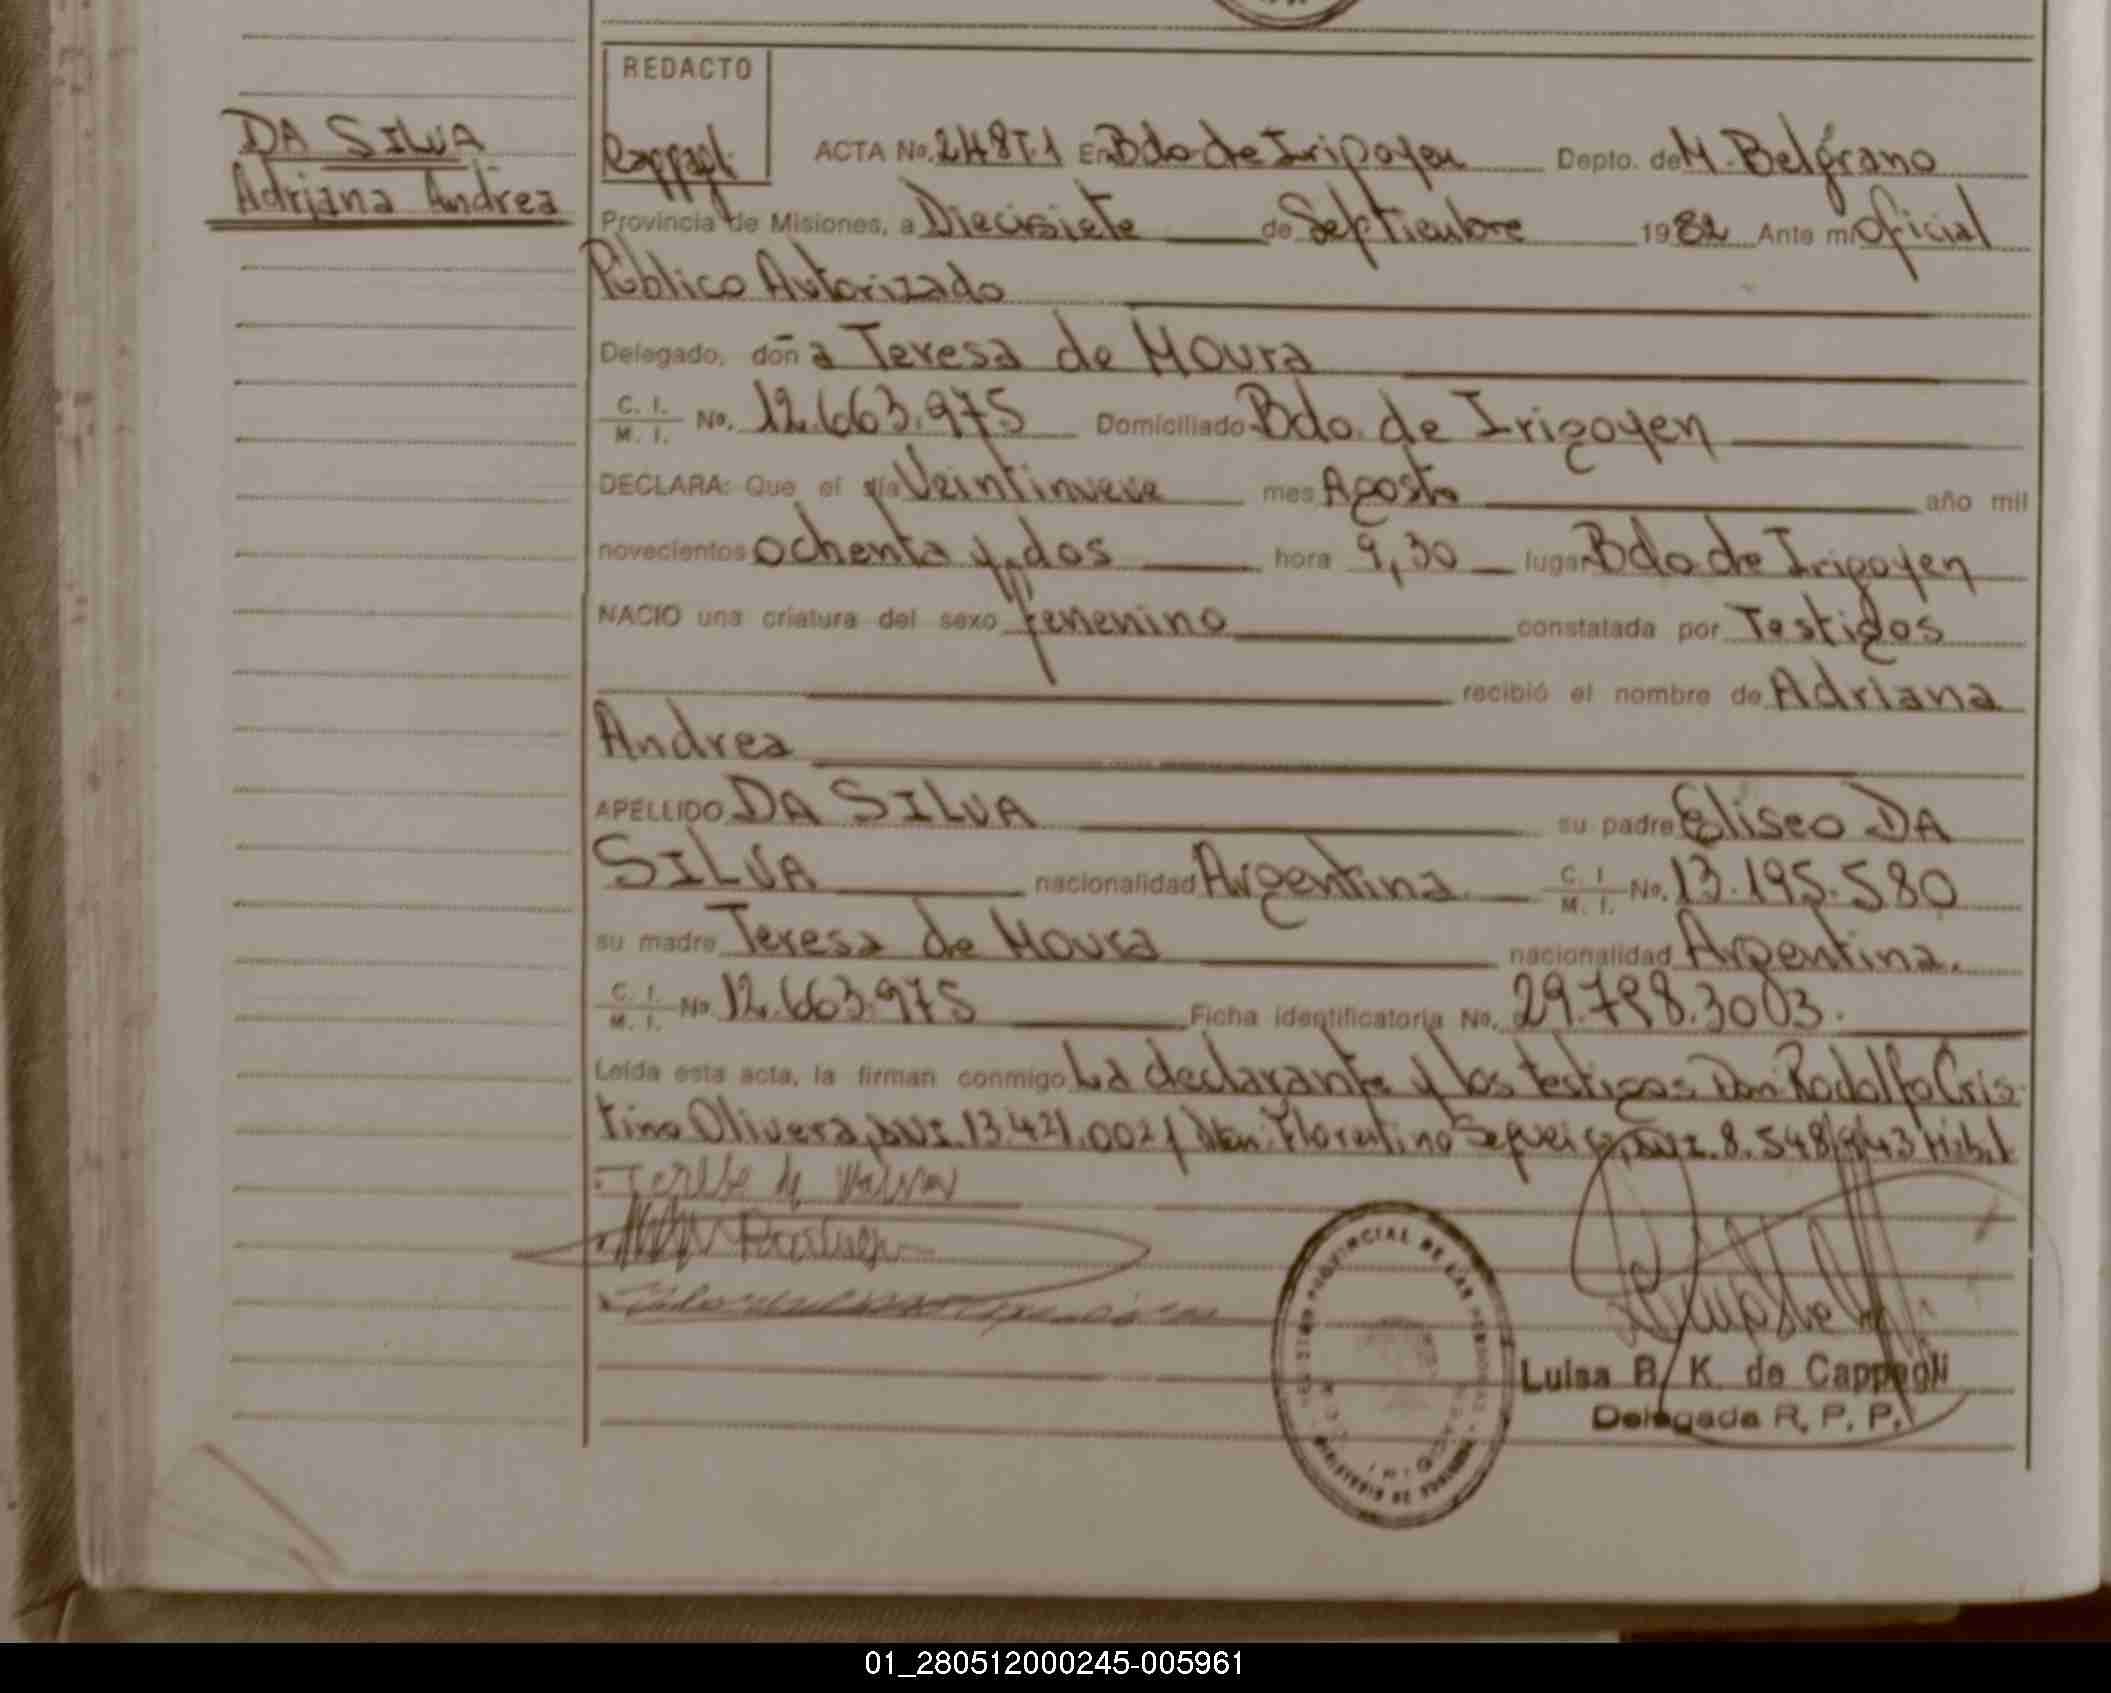 DA SILVA
Adriana Andrea
REDACTO
Cappagli
ACTA No. 248T.1 En Bdo de Irigoyen Depto. de M. Belgrano
Provincia de Misiones, a Diecisiete de Septiembre 1982 Ante mi Oficial
Público Autorizado
Delegado, doña Teresa de Moura
C. I. M. I. No. 12.663.975 Domiciliado Bdo. de Irigoyen
DECLARA: Que el día Veintinueve mes Agosto año mil
novecientos ochenta y dos hora 9,30 lugar Bdo de Irigoyen
NACIO una criatura del sexo femenino constatada por Testigos
recibió el nombre de Adriana
Andrea
APELLIDO DA SILVA su padre Eliseo DA
SILVA nacionalidad Argentina C. I. M. I. No. 13.195.580
su madre Teresa de Moura nacionalidad Argentina.
C. I. M. I. No. 12.663.975 Ficha identificatoria No. 29.798.3003.
Leída esta acta, la firman conmigo La declarante y los testigos Don Rodolfo Cris
tino Olivera, DNI. 13.421.002 y Don Florentino Sequeira, DNI. 8.548.943 Habil
REGISTRO PROVINCIAL DE LAS PERSONAS
MINISTERIO DE GOBIERNO
Luisa B. K. de Cappagli
Delegada R. P. P.
01_280512000245-005961